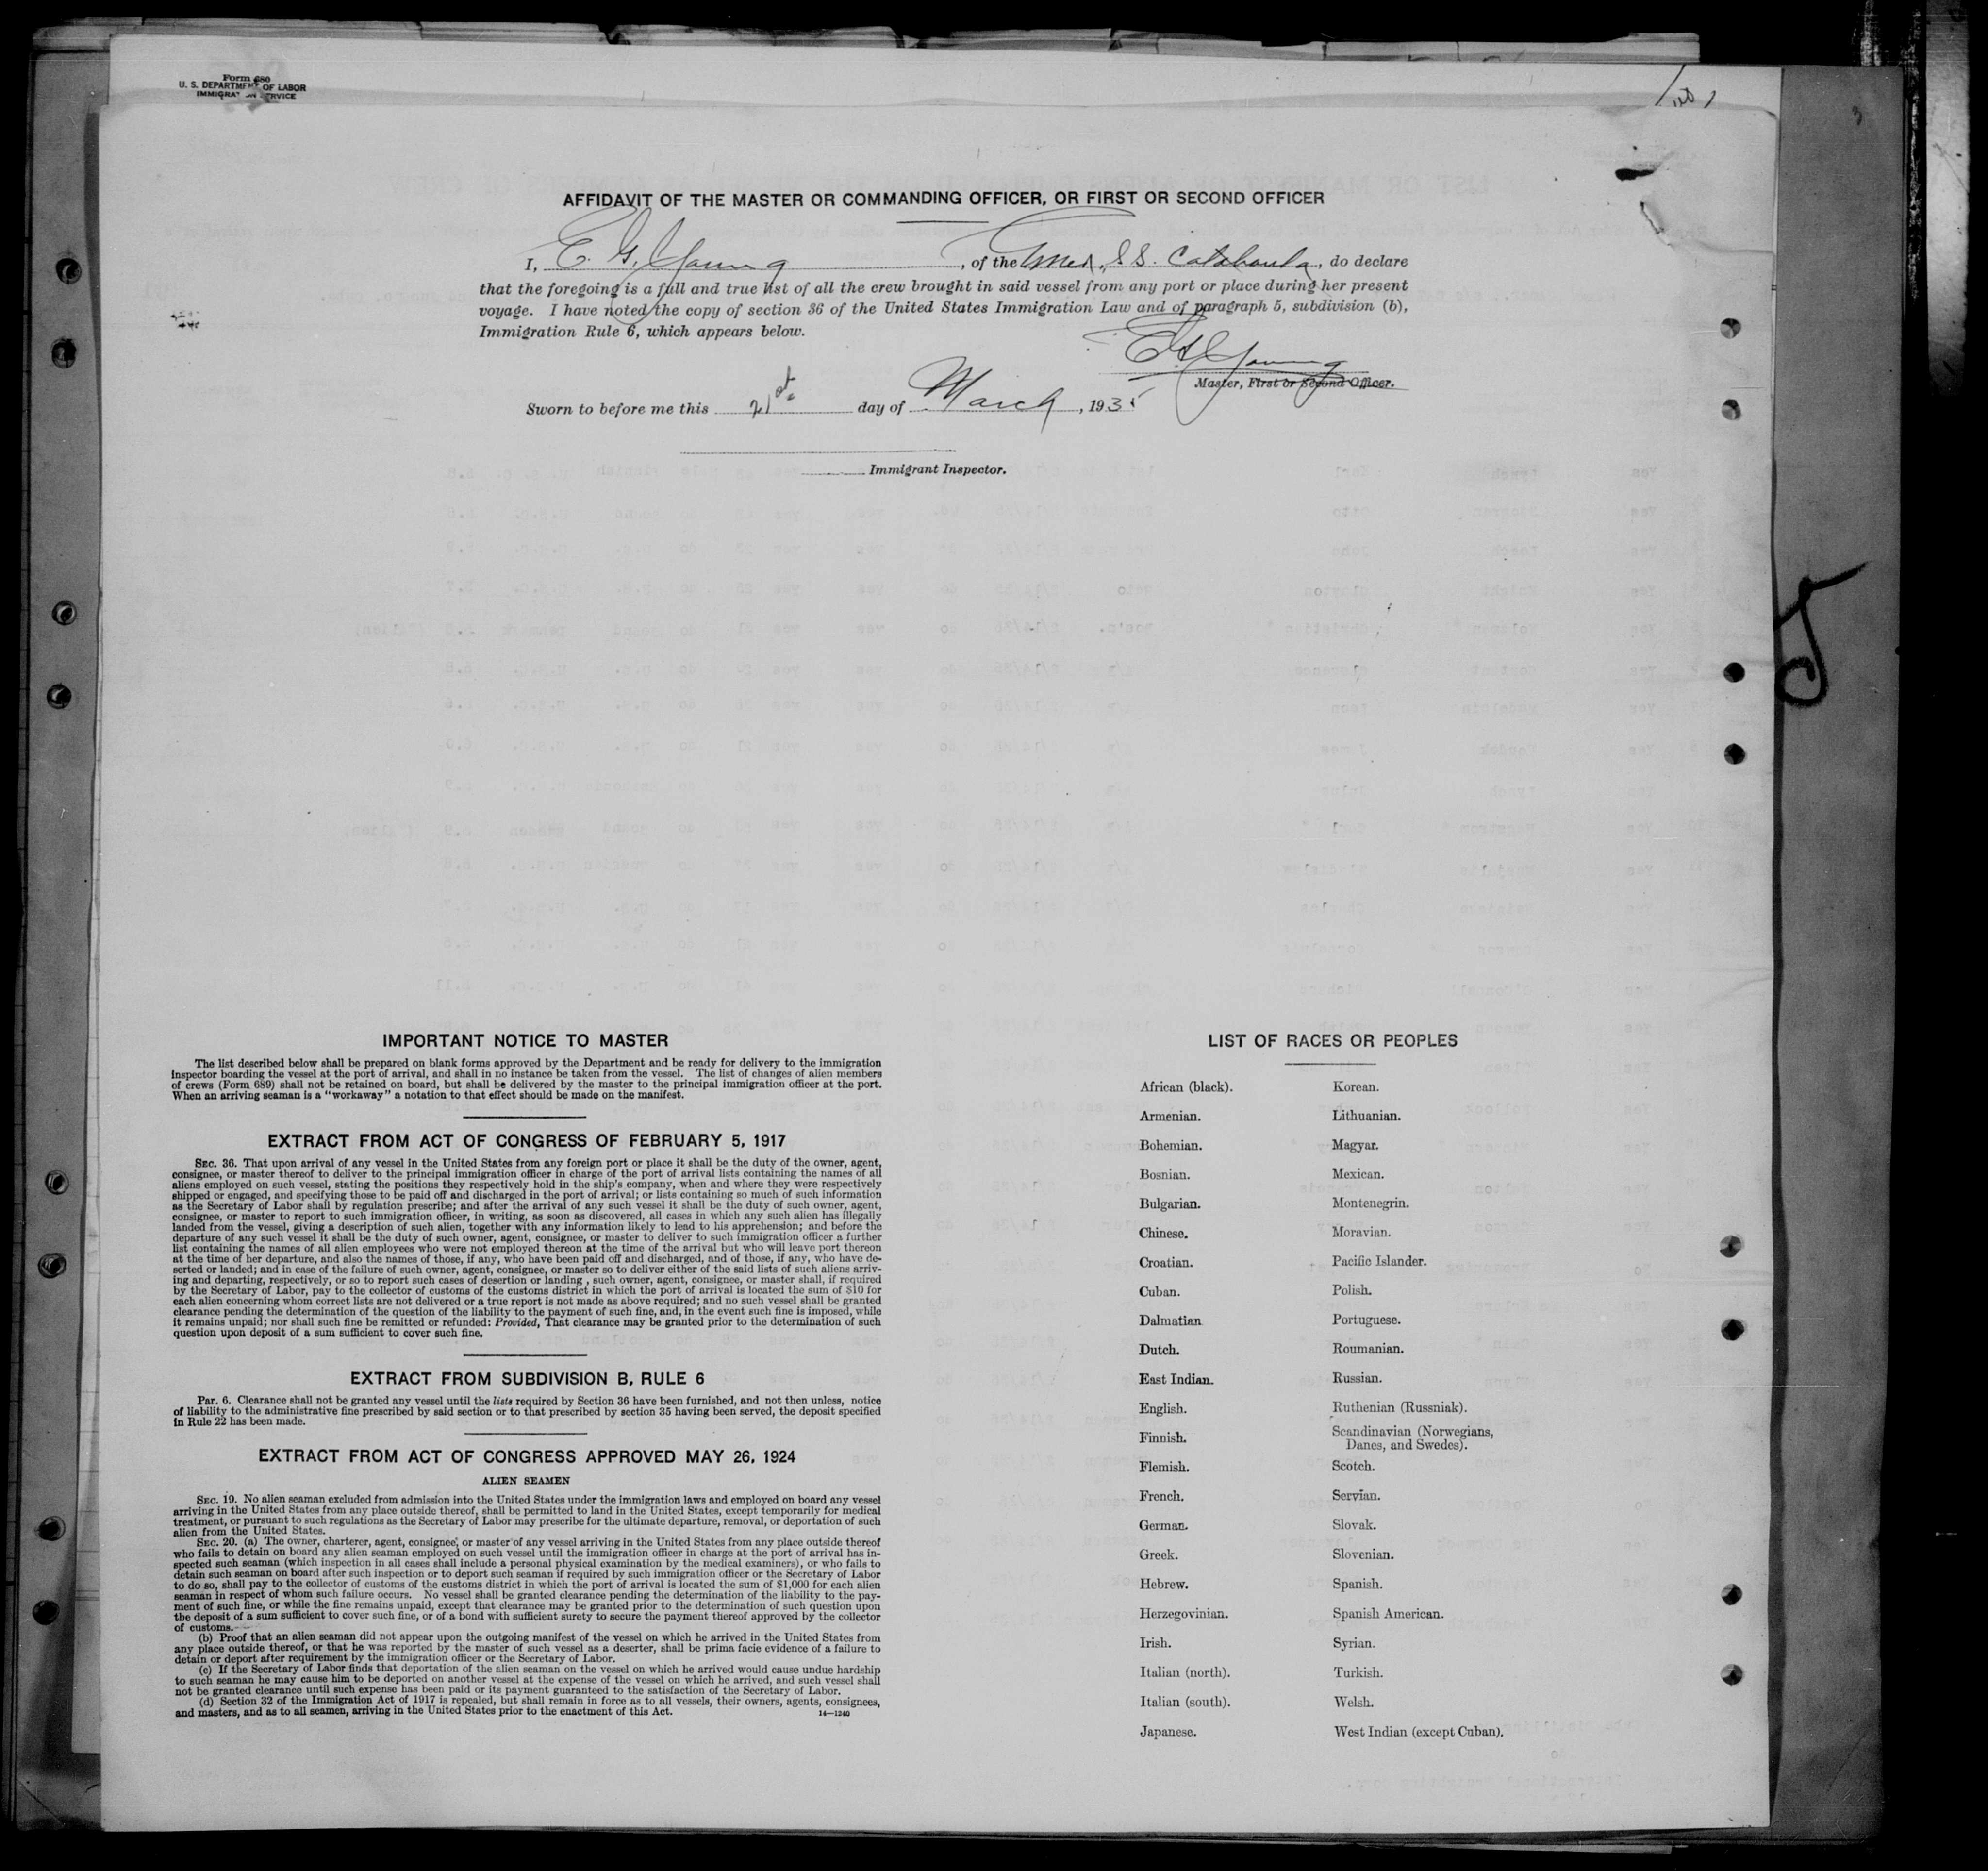 Form 680
U. S. DEPARTMENT OF LABOR
IMMIGRATION SERVICE
AFFIDAVIT OF THE MASTER OR COMMANDING OFFICER, OR FIRST OR SECOND OFFICER
I, E. G. Young, of the Amer. S.S. Catahoula, do declare
that the foregoing is a full and true list of all the crew brought in said vessel from any port or place during her present
voyage. I have noted the copy of section 36 of the United States Immigration Law and of paragraph 5, subdivision (b),
Immigration Rule 6, which appears below.
E G Young
Master, First or Second Officer.
Sworn to before me this 21st day of March, 1935
Immigrant Inspector.
IMPORTANT NOTICE TO MASTER
The list described below shall be prepared on blank forms approved by the Department and be ready for delivery to the immigration
inspector boarding the vessel at the port of arrival, and shall in no instance be taken from the vessel. The list of changes of alien members
of crews (Form 689) shall not be retained on board, but shall be delivered by the master to the principal immigration officer at the port.
When an arriving seaman is a "workaway" a notation to that effect should be made on the manifest.
EXTRACT FROM ACT OF CONGRESS OF FEBRUARY 5, 1917
SEC. 36. That upon arrival of any vessel in the United States from any foreign port or place it shall be the duty of the owner, agent,
consignee, or master thereof to deliver to the principal immigration officer in charge of the port of arrival lists containing the names of all
aliens employed on such vessel, stating the positions they respectively hold in the ship's company, when and where they were respectively
shipped or engaged, and specifying those to be paid off and discharged in the port of arrival; or lists containing so much of such information
as the Secretary of Labor shall by regulation prescribe; and after the arrival of any such vessel it shall be the duty of such owner, agent,
consignee, or master to report to such immigration officer, in writing, as soon as discovered, all cases in which any such alien has illegally
landed from the vessel, giving a description of such alien, together with any information likely to lead to his apprehension; and before the
departure of any such vessel it shall be the duty of such owner, agent, consignee, or master to deliver to such immigration officer a further
list containing the names of all alien employees who were not employed thereon at the time of the arrival but who will leave port thereon
at the time of her departure, and also the names of those, if any, who have been paid off and discharged, and of those, if any, who have de-
serted or landed; and in case of the failure of such owner, agent, consignee, or master so to deliver either of the said lists of such aliens arriv-
ing and departing, respectively, or so to report such cases of desertion or landing , such owner, agent, consignee, or master shall, if required
by the Secretary of Labor, pay to the collector of customs of the customs district in which the port of arrival is located the sum of $10 for
each alien concerning whom correct lists are not delivered or a true report is not made as above required; and no such vessel shall be granted
clearance pending the determination of the question of the liability to the payment of such fine, and, in the event such fine is imposed, while
it remains unpaid; nor shall such fine be remitted or refunded: Provided, That clearance may be granted prior to the determination of such
question upon deposit of a sum sufficient to cover such fine.
EXTRACT FROM SUBDIVISION B, RULE 6
Par. 6. Clearance shall not be granted any vessel until the lists required by Section 36 have been furnished, and not then unless, notice
of liability to the administrative fine prescribed by said section or to that prescribed by section 35 having been served, the deposit specified
in Rule 22 has been made.
EXTRACT FROM ACT OF CONGRESS APPROVED MAY 26, 1924
ALIEN SEAMEN
SEC. 19. No alien seaman excluded from admission into the United States under the immigration laws and employed on board any vessel
arriving in the United States from any place outside thereof, shall be permitted to land in the United States, except temporarily for medical
treatment, or pursuant to such regulations as the Secretary of Labor may prescribe for the ultimate departure, removal, or deportation of such
alien from the United States.
SEC. 20. (a) The owner, charterer, agent, consignee, or master of any vessel arriving in the United States from any place outside thereof
who fails to detain on board any alien seaman employed on such vessel until the immigration officer in charge at the port of arrival has in-
spected such seaman (which inspection in all cases shall include a personal physical examination by the medical examiners), or who fails to
detain such seaman on board after such inspection or to deport such seaman if required by such immigration officer or the Secretary of Labor
to do so, shall pay to the collector of customs of the customs district in which the port of arrival is located the sum of $1,000 for each alien
seaman in respect of whom such failure occurs. No vessel shall be granted clearance pending the determination of the liability to the pay-
ment of such fine, or while the fine remains unpaid, except that clearance may be granted prior to the determination of such question upon
the deposit of a sum sufficient to cover such fine, or of a bond with sufficient surety to secure the payment thereof approved by the collector
of customs.
(b) Proof that an alien seaman did not appear upon the outgoing manifest of the vessel on which he arrived in the United States from
any place outside thereof, or that he was reported by the master of such vessel as a deserter, shall be prima facie evidence of a failure to
detain or deport after requirement by the immigration officer or the Secretary of Labor.
(c) If the Secretary of Labor finds that deportation of the alien seaman on the vessel on which he arrived would cause undue hardship
to such seaman he may cause him to be deported on another vessel at the expense of the vessel on which he arrived, and such vessel shall
not be granted clearance until such expense has been paid or its payment guaranteed to the satisfaction of the Secretary of Labor.
(d) Section 32 of the Immigration Act of 1917 is repealed, but shall remain in force as to all vessels, their owners, agents, consignees,
and masters, and as to all seamen, arriving in the United States prior to the enactment of this Act.
14—1240
LIST OF RACES OR PEOPLES
African (black).
Armenian.
Bohemian.
Bosnian.
Bulgarian.
Chinese.
Croatian.
Cuban.
Dalmatian
Dutch.
East Indian.
English.
Finnish.
Flemish.
French.
German.
Greek.
Hebrew.
Herzegovinian.
Irish.
Italian (north).
Italian (south).
Japanese.
Korean.
Lithuanian.
Magyar.
Mexican.
Montenegrin.
Moravian.
Pacific Islander.
Polish.
Portuguese.
Roumanian.
Russian.
Ruthenian (Russniak).
Scandinavian (Norwegians,
Danes, and Swedes).
Scotch.
Servian.
Slovak.
Slovenian.
Spanish.
Spanish American.
Syrian.
Turkish.
Welsh.
West Indian (except Cuban).